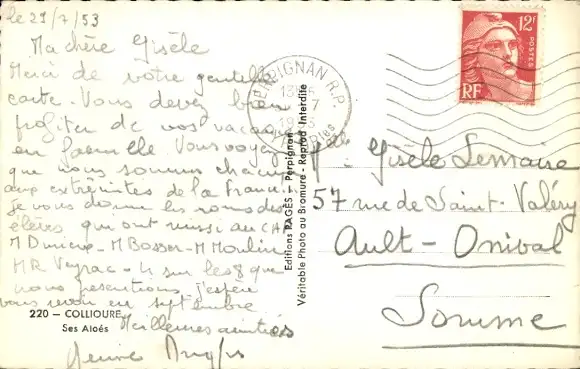 le 21/7/53
Ma chère Gisèle
Merci de votre gentille
carte. Vous devez bien
profiter de vos vacances
en famille. Vous voyez
que nous sommes chacun
aux extrémités de la France.
Je vous donne les noms des
élèves qui ont réussi au CAP
M Bosser - M Moulin
M R Veyrac - 4 sur les 8 que
nous présentions j'espère
vous revoir en septembre
Meilleures amitiés
220 — COLLIOURE
Ses Aloès
Editions PAGÈS - Perpignan
Véritable Photo au Bromure - Reprod. Interdite
PERPIGNAN R.P.
12F
POSTES
RF
Gisèle Lemaire
57 rue de Saint-Valéry
Ault-Onival
Somme